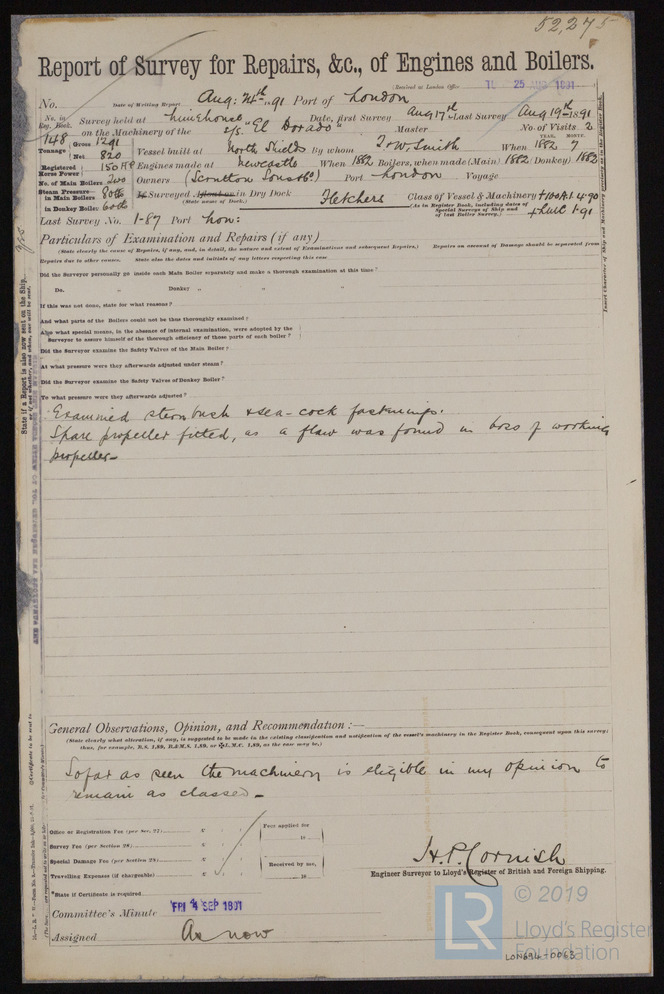 52,275
Report of Survey for Repairs, &c., of Engines and Boilers.
(Received at London Office TU 25 AUG 1891
No. Date of Writing Report Aug: 24th 91 Port of London
No. in Reg. Book. Survey held at Limehouse Date, first Survey Aug 17th Last Survey Aug 19th 1891
148 on the Machinery of the s/s. "El Dorado" Master No. of Visits 2
Tonnage Gross 1291 Net 820 Vessel built at North Shields By whom T & W Smith When 1882 YEAR. MONTH. 7
Registered Horse Power 150 HP Engines made at Newcastle When 1882 Boilers, when made (Main) 1882 (Donkey) 1882
No. of Main Boilers Two Owners (Scrutton Sons & Co) Port London Voyage
Steam Pressure in Main Boilers 80 lb Surveyed in Dry Dock Fletchers Class of Vessel & Machinery +100A1 4-90
in Donkey Boiler 60 lb (State name of Dock.) (As in Register Book, including dates of Special Surveys of Ship and of last Boiler Survey.) +LMC 1-91
Last Survey No. 1-87 Port Lon:
Particulars of Examination and Repairs (if any)
(State clearly the cause of Repairs, if any, and, in detail, the nature and extent of Examinations and subsequent Repairs.) Repairs on account of Damage should be separated from
Repairs due to other causes. State also the dates and initials of any letters respecting this case
Did the Surveyor personally go inside each Main Boiler separately and make a thorough examination at this time?
Do. „ Donkey „ „ „
If this was not done, state for what reasons?
And what parts of the Boilers could not be thus thoroughly examined?
Also what special means, in the absence of internal examination, were adopted by the
Surveyor to assure himself of the thorough efficiency of those parts of each boiler?
Did the Surveyor examine the Safety Valves of the Main Boiler?
At what pressure were they afterwards adjusted under steam?
Did the Surveyor examine the Safety Valves of Donkey Boiler?
To what pressure were they afterwards adjusted?
Examined stern bush & sea-cock fastenings.
Spare propeller fitted, as a flaw was found in boss of working
propeller—
General Observations, Opinion, and Recommendation:—
(State clearly what alteration, if any, is suggested to be made in the existing classification and notification of the vessel's machinery in the Register Book, consequent upon this survey;
thus, for example, B.S. 1,89, B.&M.S. 1,89, or ✠L.M.C. 1,89, as the case may be.)
So far as seen the machinery is eligible in my opinion to
remain as classed—
Office or Registration Fee (per Sec. 27) £ : : Fees applied for
Survey Fee (per Section 28) £ : : 18
Special Damage Fee (per Section 28) £ : : Received by me,
Travelling Expenses (if chargeable) £ : : 18
H.P. Cornish
Engineer Surveyor to Lloyd's Register of British and Foreign Shipping.
*State if Certificate is required
Committee's Minute FRI 4 SEP 1891
Assigned As now
State if a Report is also now sent on the Ship,
Yes
LR © 2019
Lloyd's Register
Foundation
LON694-0063